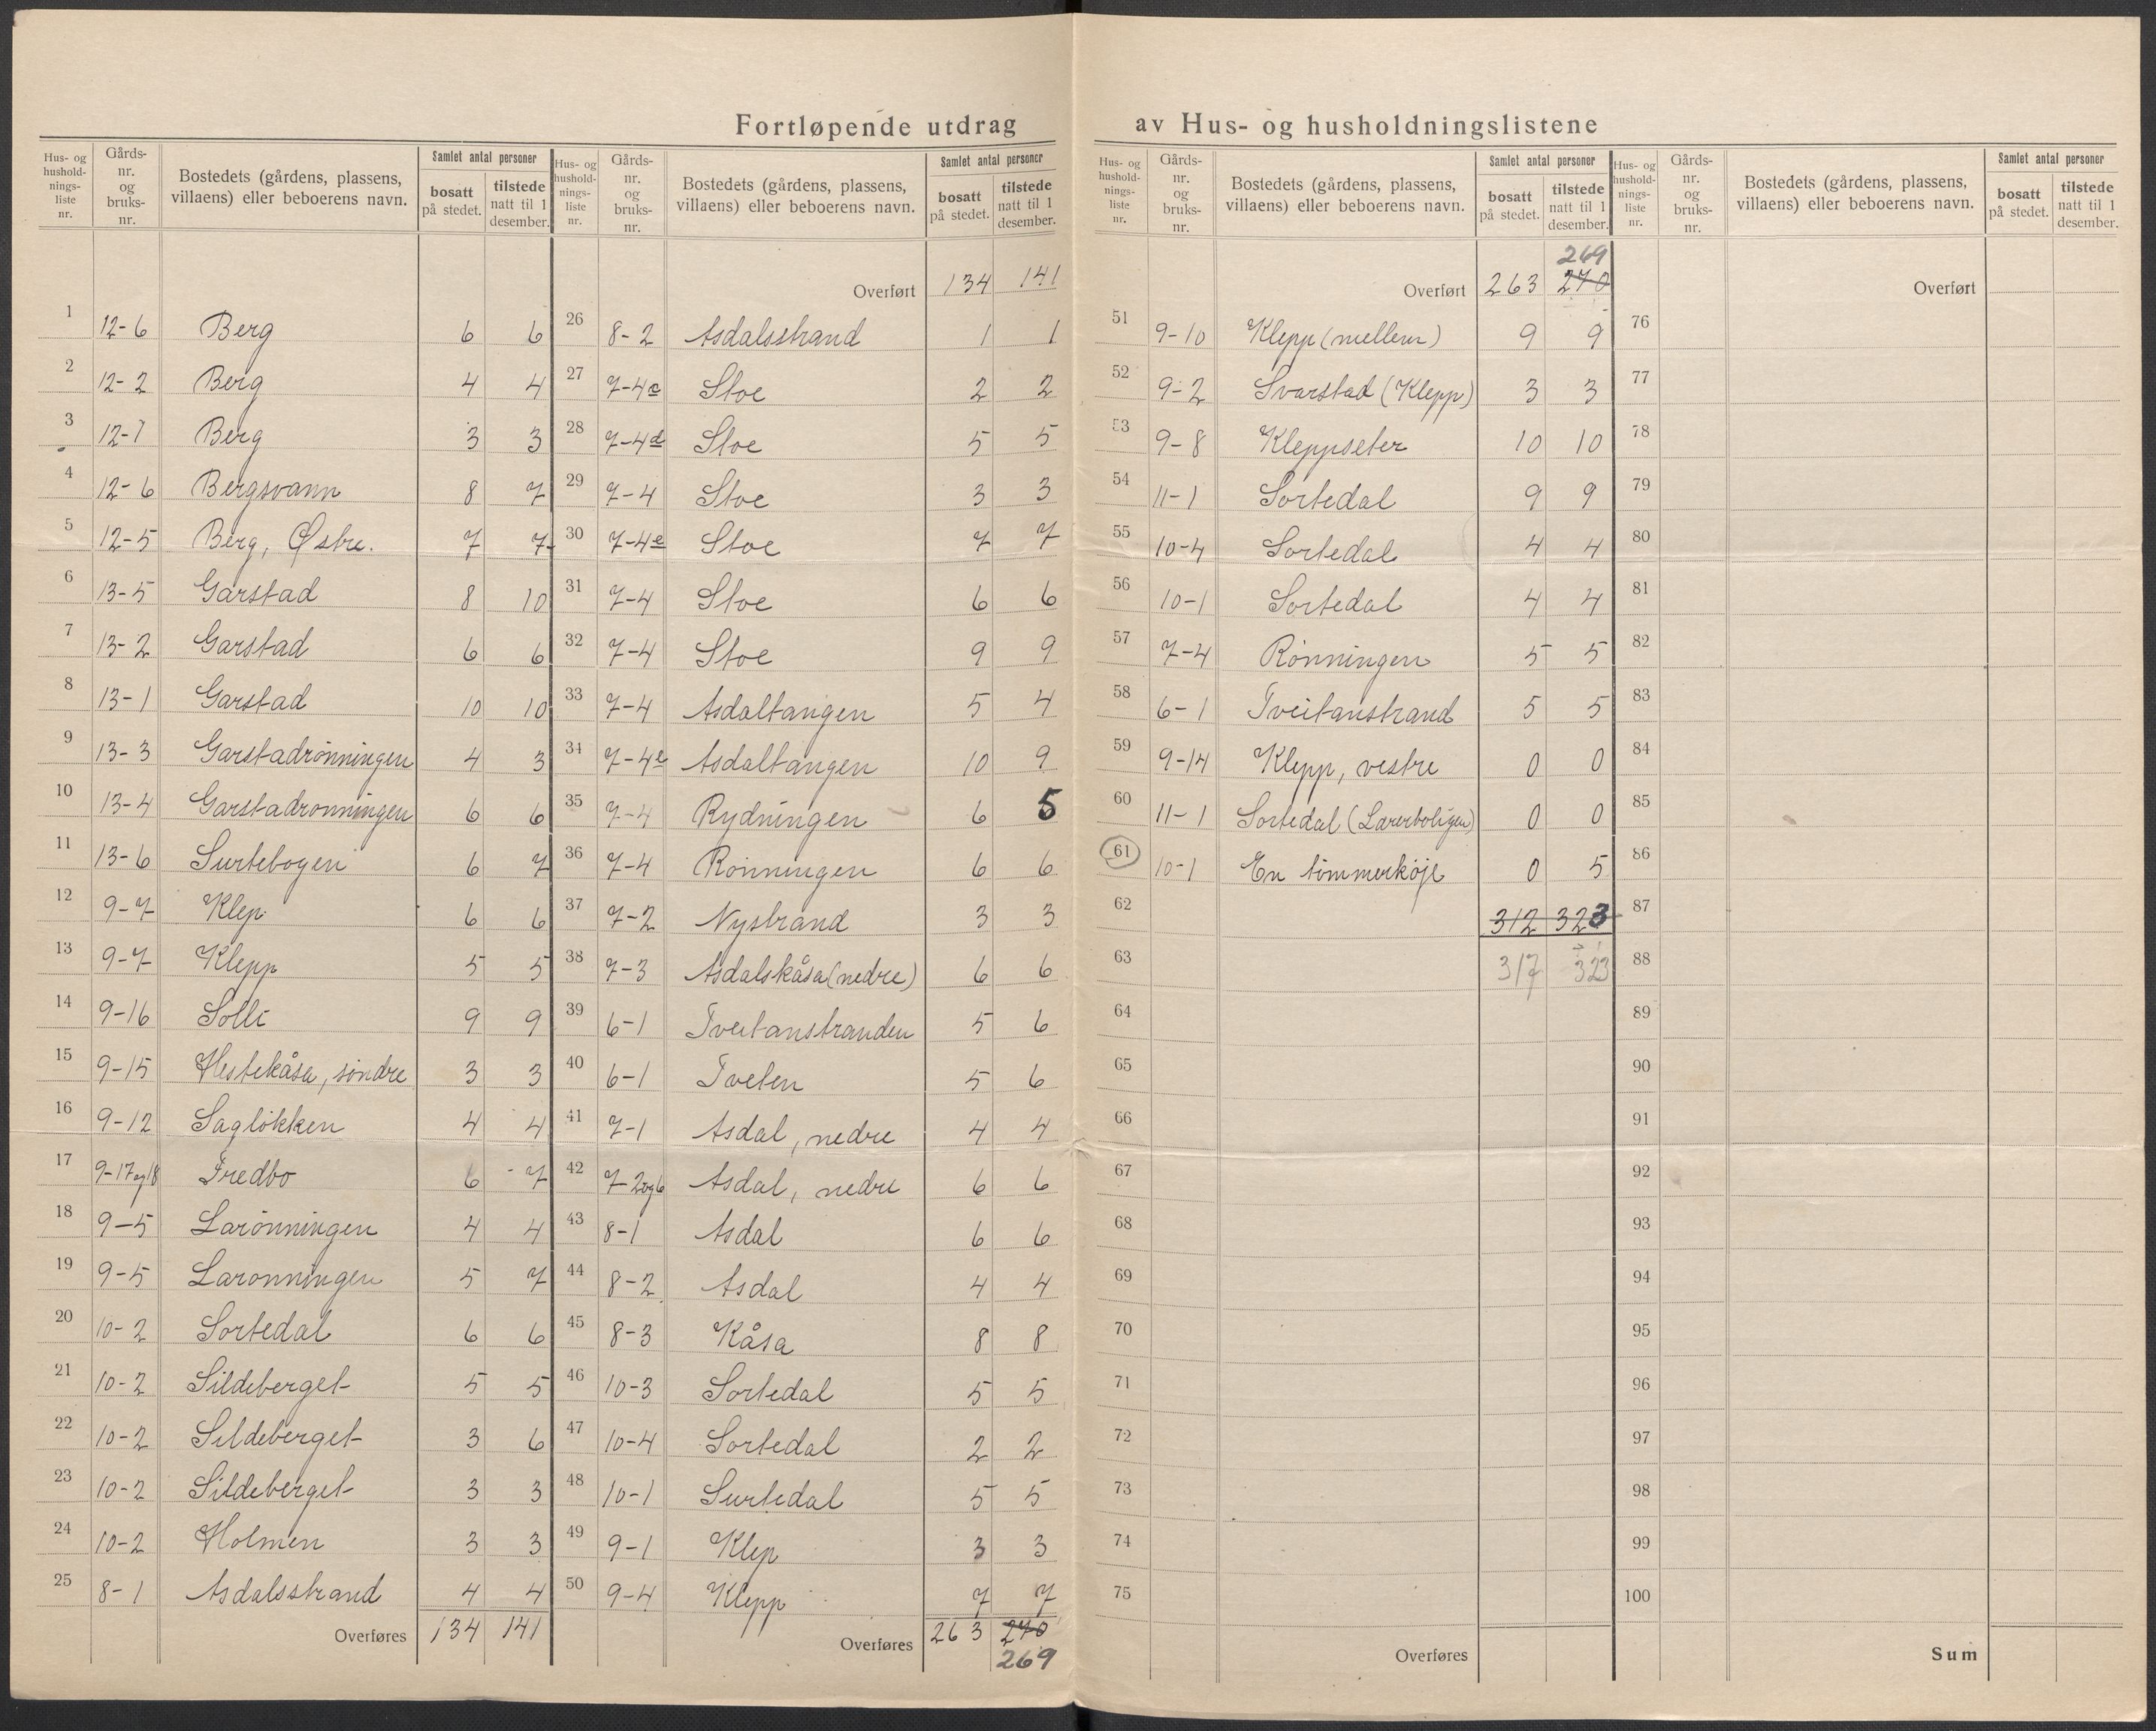 Fortløpende utdrag av Hus- og husholdningslistene
Hus- og hushold-nings-liste nr. | Gårds-nr. og bruks-nr. | Bostedets (gårdens, plassens, villaens) eller beboerens navn. | Samlet antal personer | bosatt på stedet. | tilstede natt til 1 desember.
1 12-6 Berg 6 6
2 12-2 Berg 4 4
3 12-7 Berg 3 3
4 12-6 Bergsvann 8 7
5 12-5 Berg, Østre. 7 7
6 13-5 Garstad 8 10
7 13-2 Garstad 6 6
8 13-1 Garstad 10 10
9 13-3 Garstadrönningen 4 3
10 13-4 Garstadronningen 6 6
11 13-6 Surtebogen 6 7
12 9-7 Klep 6 6
13 9-7 Klepp 5 5
14 9-16 Solli 9 9
15 9-15 Hestekåsa, söndre 3 3
16 9-12 Saglökken 4 4
17 9-17og18 Fredbo 6 7
18 9-5 Larönningen 4 4
19 9-5 Laronningen 5 7
20 10-2 Sortedal 6 6
21 10-2 Sildeberget 5 5
22 10-2 Sildeberget 3 6
23 10-2 Sildeberget 3 3
24 10-2 Holmen 3 3
25 8-1 Asdalsstrand 4 4
Overføres 134 141
Hus- og hushold-nings-liste nr. | Gårds-nr. og bruks-nr. | Bostedets (gårdens, plassens, villaens) eller beboerens navn. | Samlet antal personer | bosatt på stedet. | tilstede natt til 1 desember.
Overført 134 141
26 8-2 Asdalsstrand 1 1
27 7-4c Stoe 2 2
28 7-4d Stoe 5 5
29 7-4 Stoe 3 3
30 7-4e Stoe 7 7
31 7-4 Stoe 6 6
32 7-4 Stoe 9 9
33 7-4 Asdaltangen 5 4
34 7-4e Asdaltangen 10 9
35 7-4 Rydningen 6 5
36 7-4 Rönningen 6 6
37 7-2 Nystrand 3 3
38 7-3 Asdalskåsa (nedre) 6 6
39 6-1 Tveitanstranden 5 6
40 6-1 Tveten 5 6
41 7-1 Asdal, nedre 4 4
42 7-2og6 Asdal, nedre 6 6
43 8-1 Asdal 6 6
44 8-2 Asdal 4 4
45 8-3 Kåsa 8 8
46 10-3 Sortedal 5 5
47 10-4 Sortedal 2 2
48 10-1 Surtedal 5 5
49 9-1 Klep 3 3
50 9-4 Klepp 7 7
Overføres 263 270
269
Hus- og hushold-nings-liste nr. | Gårds-nr. og bruks-nr. | Bostedets (gårdens, plassens, villaens) eller beboerens navn. | Samlet antal personer | bosatt på stedet. | tilstede natt til 1 desember.
269
Overført 263 270
51 9-10 Klepp (mellem) 9 9
52 9-2 Svarstad (Klepp) 3 3
53 9-8 Kleppseter 10 10
54 11-1 Sortedal 9 9
55 10-4 Sortedal 4 4
56 10-1 Sortedal 4 4
57 7-4 Rönningen 5 5
58 6-1 Tveitanstrand 5 5
59 9-14 Klepp, vestre 0 0
60 11-1 Sortedal (Lærerboligen) 0 0
61 10-1 En tömmerköje 0 5
62 312 323
63 317 323
64
65
66
67
68
69
70
71
72
73
74
75
Overføres
Hus- og hushold-nings-liste nr. | Gårds-nr. og bruks-nr. | Bostedets (gårdens, plassens, villaens) eller beboerens navn. | Samlet antal personer | bosatt på stedet. | tilstede natt til 1 desember.
Overført
76
77
78
79
80
81
82
83
84
85
86
87
88
89
90
91
92
93
94
95
96
97
98
99
100
Sum